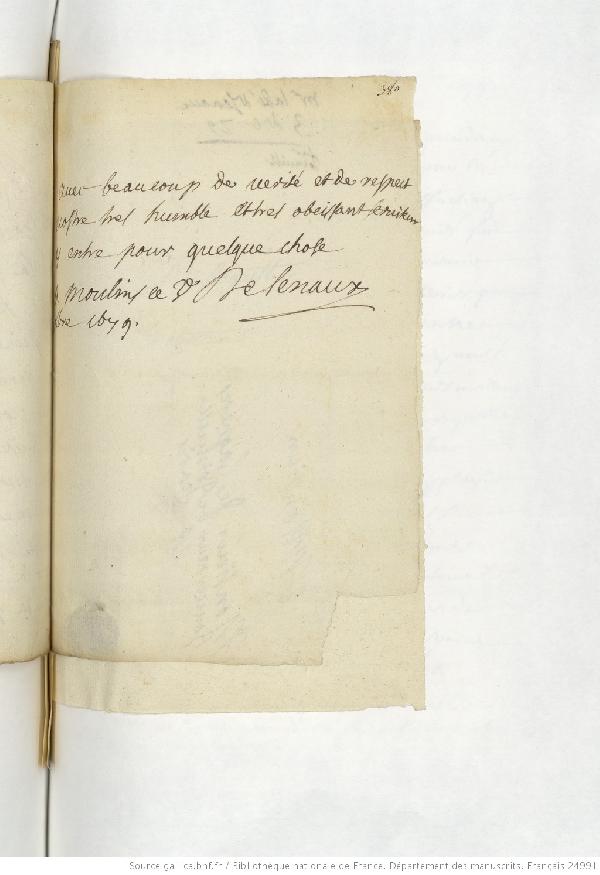 380
avec beaucoup de verité et de respect
vostre tres humble et tres obeissant serviteur
y entre pour quelque chose
moulins ce De lenaux
bre 1679.
Source gallica.bnf.fr / Bibliothèque nationale de France. Département des manuscrits. Français 24991